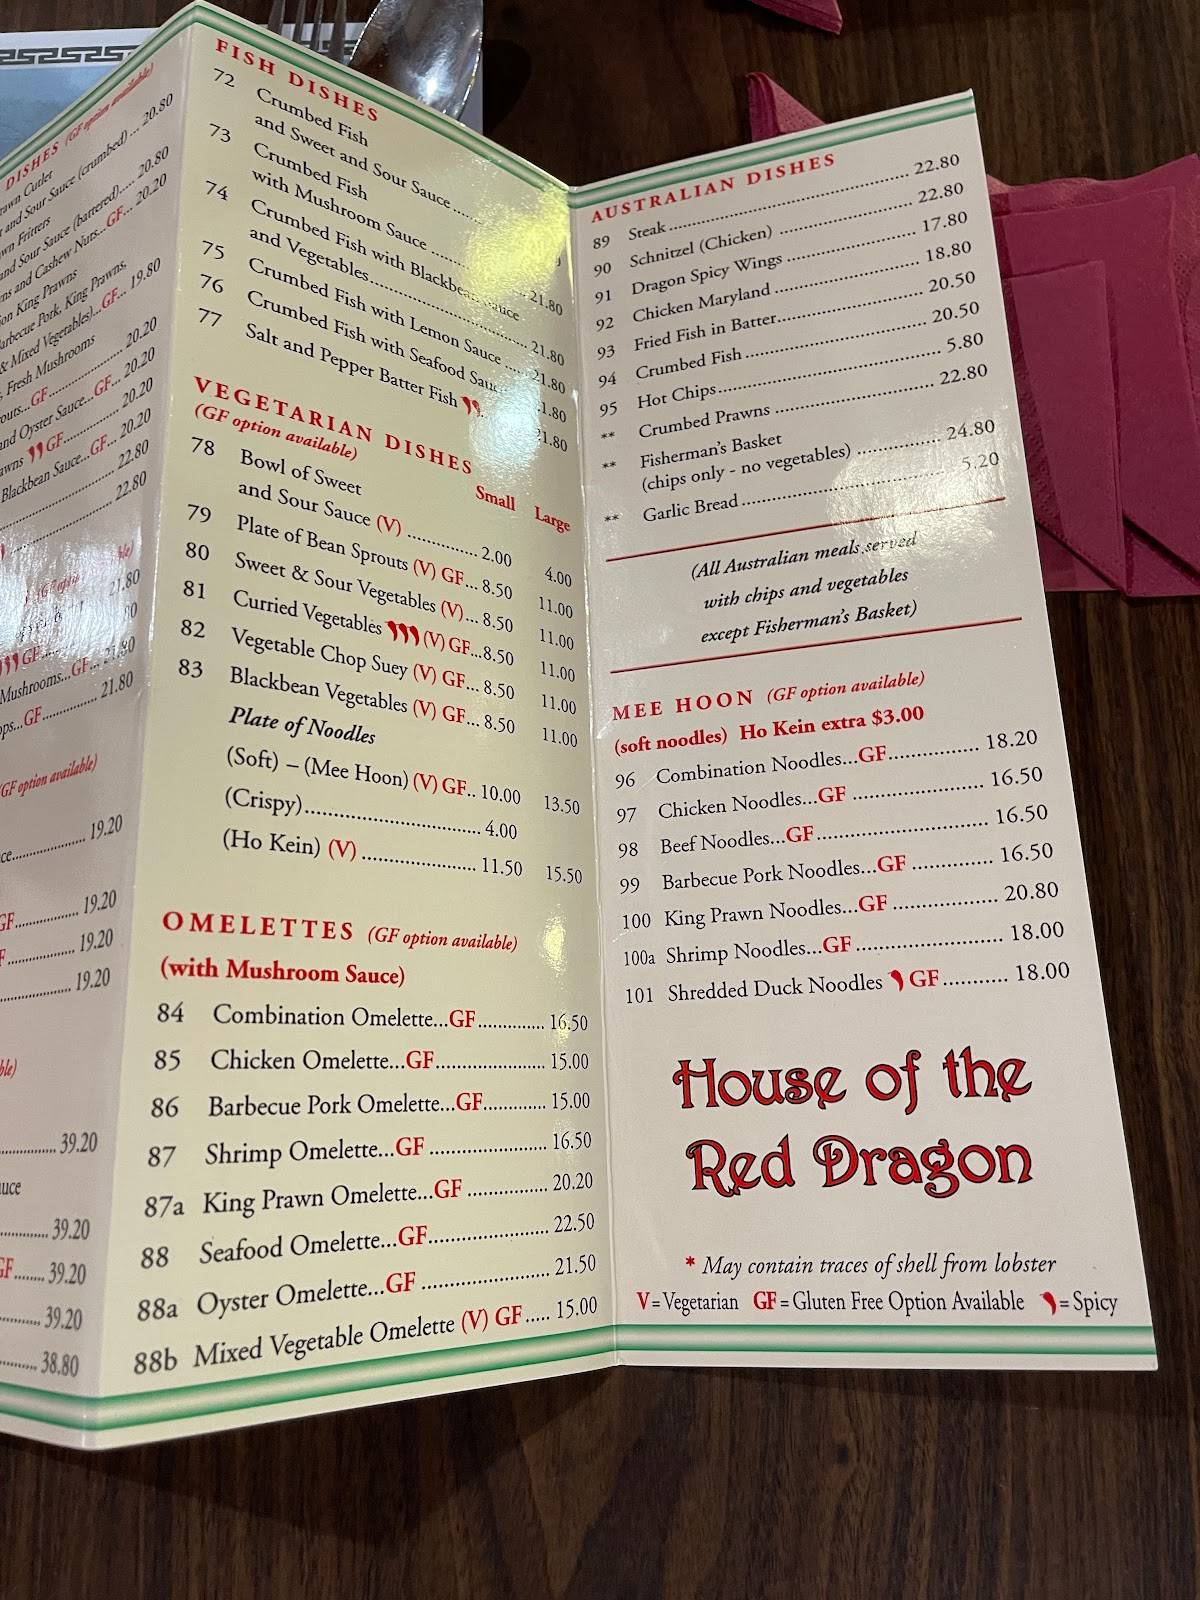 DISHES (GF option available)
Cutlet
and Sour Sauce (crumbed) ... 20.80
Fritters
and Sour Sauce (battered)..... 20.80
and Cashew Nuts...GF... 20.20
King Prawns
Barbecue Pork, King Prawns,
& Mixed Vegetables)...GF... 19.80
Fresh Mushrooms
GF.................. 20.20
and Oyster Sauce...GF... 20.20
GF................. 20.20
Blackbean Sauce...GF... 20.20
22.80
22.80
21.80
GF
Mushrooms...GF... 21.80
GF.............. 21.80
(GF option available)
19.20
GF................. 19.20
19.20
19.20
39.20
39.20
GF........ 39.20
39.20
38.80
FISH DISHES
72 Crumbed Fish
and Sweet and Sour Sauce......
73 Crumbed Fish
with Mushroom Sauce
74 Crumbed Fish with Blackbean Sauce
and Vegetables 21.80
75 Crumbed Fish with Lemon Sauce 21.80
76 Crumbed Fish with Seafood 21.80
77 Salt and Pepper Batter Fish 21.80
VEGETARIAN DISHES
(GF option available)
Small Large
78 Bowl of Sweet
and Sour Sauce (V) .............. 2.00 4.00
79 Plate of Bean Sprouts (V) GF... 8.50 11.00
80 Sweet & Sour Vegetables (V)... 8.50 11.00
81 Curried Vegetables (V) GF...8.50 11.00
82 Vegetable Chop Suey (V) GF... 8.50 11.00
83 Blackbean Vegetables (V) GF... 8.50 11.00
Plate of Noodles
(Soft) – (Mee Hoon) (V) GF.. 10.00 13.50
(Crispy)................................. 4.00
(Ho Kein) (V) ..................... 11.50 15.50
OMELETTES (GF option available)
(with Mushroom Sauce)
84 Combination Omelette...GF.............. 16.50
85 Chicken Omelette...GF....................... 15.00
86 Barbecue Pork Omelette...GF............. 15.00
87 Shrimp Omelette...GF ........................ 16.50
87a King Prawn Omelette...GF ................ 20.20
88 Seafood Omelette...GF........................ 22.50
88a Oyster Omelette...GF .......................... 21.50
88b Mixed Vegetable Omelette (V) GF..... 15.00
AUSTRALIAN DISHES
89 Steak ........................................ 22.80
90 Schnitzel (Chicken) ...................... 22.80
91 Dragon Spicy Wings ...................... 17.80
92 Chicken Maryland ........................ 18.80
93 Fried Fish in Batter........................ 20.50
94 Crumbed Fish .............................. 20.50
95 Hot Chips..................................... 5.80
** Crumbed Prawns .......................... 22.80
** Fisherman's Basket
(chips only - no vegetables) .............. 24.80
** Garlic Bread .................................. 5.20
(All Australian meals served
with chips and vegetables
except Fisherman's Basket)
MEE HOON (GF option available)
(soft noodles) Ho Kein extra $3.00
96 Combination Noodles...GF............... 18.20
97 Chicken Noodles...GF ...................... 16.50
98 Beef Noodles...GF............................. 16.50
99 Barbecue Pork Noodles...GF .............. 16.50
100 King Prawn Noodles...GF .................. 20.80
100a Shrimp Noodles...GF ......................... 18.00
101 Shredded Duck Noodles GF........... 18.00
House of the
Red Dragon
* May contain traces of shell from lobster
V = Vegetarian GF = Gluten Free Option Available = Spicy